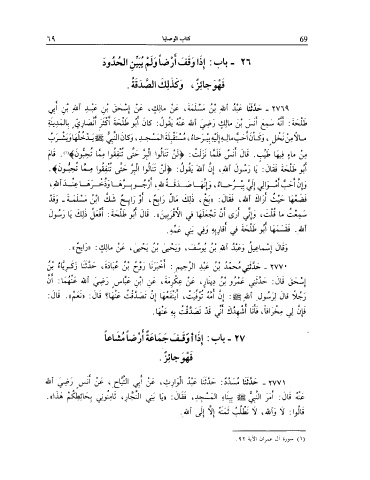 ٦٩ كتاب الوصايا 69
٢٦ - باب : إِذَا وَقَفَ أَرْضاً وَلَمْ يُبَيِّنِ الْحُدُودَ
فَهُوَ جَائِزٌ ، وَكَذٰلِكَ الصَّدَقَةُ.
٢٧٦٩ - حَدَّثَنَا عَبْدُ اللهِ بْنُ مَسْلَمَةَ، عَنْ مَالِكٍ، عَنْ إِسْحَقَ بْنِ عَبْدِ اللهِ بْنِ أَبِي
طَلْحَةَ: أَنَّهُ سَمِعَ أَنَسَ بْنَ مَالِكٍ رَضِيَ اللهُ عَنْهُ يَقُولُ: كَانَ أَبُو طَلْحَةَ أَكْثَرَ أَنْصَارِيٍّ بِالمَدِينَةِ
مَالاً مِنْ نَخْلٍ، وَكَانَ أَحَبَّ مَالِهِ إِلَيْهِ بَيْرَحَاءَ، مُسْتَقْبِلَةَ المَسْجِدِ، وَكَانَ النَّبِيُّ ﷺ يَدْخُلُهَا وَيَشْرَبُ
مِنْ مَاءٍ فِيهَا طَيِّبٍ. قَالَ أَنَسٌ: فَلَمَّا نَزَلَتْ: ﴿لَنْ تَنَالُوا الْبِرَّ حَتَّى تُنْفِقُوا مِمَّا تُحِبُّونَ﴾(١). قَامَ
أَبُو طَلْحَةَ فَقَالَ: يَا رَسُولَ اللهِ، إِنَّ اللهَ يَقُولُ: ﴿لَنْ تَنَالُوا الْبِرَّ حَتَّى تُنْفِقُوا مِمَّا تُحِبُّونَ﴾.
وَإِنَّ أَحَبَّ أَمْوَالِي إِلَيَّ بَيْرَحَاءَ، وَإِنَّهَا صَدَقَةٌ لِلّٰهِ، أَرْجُو بِرَّهَا وَذُخْرَهَا عِنْدَ اللهِ،
فَضَعْهَا حَيْثُ أَرَاكَ اللهُ، فَقَالَ: «بَخْ، ذٰلِكَ مَالٌ رَابِحٌ، أَوْ رَايِحٌ شَكَّ ابْنُ مَسْلَمَةَ، وَقَدْ
سَمِعْتُ مَا قُلْتَ، وَإِنِّي أَرَى أَنْ تَجْعَلَهَا فِي الأَقْرَبِينَ». قَالَ أَبُو طَلْحَةَ: أَفْعَلُ ذٰلِكَ يَا رَسُولَ
اللهِ. فَقَسَمَهَا أَبُو طَلْحَةَ فِي أَقَارِبِهِ وَفِي بَنِي عَمِّهِ.
وَقَالَ إِسْمَاعِيلُ وَعَبْدُ اللهِ بْنُ يُوسُفَ، وَيَحْيَى بْنُ يَحْيَى، عَنْ مَالِكٍ: «رَايِحٌ».
٢٧٧٠ - حَدَّثَنِي مُحَمَّدُ بْنُ عَبْدِ الرَّحِيمِ: أَخْبَرَنَا رَوْحُ بْنُ عُبَادَةَ، حَدَّثَنَا زَكَرِيَّاءُ بْنُ
إِسْحَقَ قَالَ: حَدَّثَنِي عَمْرُو بْنُ دِينَارٍ، عَنْ عِكْرِمَةَ، عَنِ ابْنِ عَبَّاسٍ رَضِيَ اللهُ عَنْهُمَا: أَنَّ
رَجُلاً قَالَ لِرَسُولِ اللهِ ﷺ: إِنَّ أُمَّهُ تُوُفِّيَتْ، أَيَنْفَعُهَا إِنْ تَصَدَّقْتُ عَنْهَا؟ قَالَ: «نَعَمْ». قَالَ:
فَإِنَّ لِي مِخْرَافاً، فَأَنَا أُشْهِدُكَ أَنِّي قَدْ تَصَدَّقْتُ بِهِ عَنْهَا.
٢٧ - باب : إِذَا أَوْقَفَ جَمَاعَةٌ أَرْضاً مُشَاعاً
فَهُوَ جَائِزٌ .
٢٧٧١ - حَدَّثَنَا مُسَدَّدٌ: حَدَّثَنَا عَبْدُ الْوَارِثِ، عَنْ أَبِي التَّيَّاحِ، عَنْ أَنَسٍ رَضِيَ اللهُ
عَنْهُ قَالَ: أَمَرَ النَّبِيُّ ﷺ بِبِنَاءِ المَسْجِدِ، فَقَالَ: «يَا بَنِي النَّجَّارِ، ثَامِنُونِي بِحَائِطِكُمْ هٰذَا».
قَالُوا: لَا وَاللهِ، لَا نَطْلُبُ ثَمَنَهُ إِلَّا إِلَى اللهِ.
(١) سورة آل عمران الآية ٩٢.